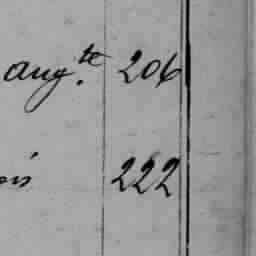 Aug.te 206
222